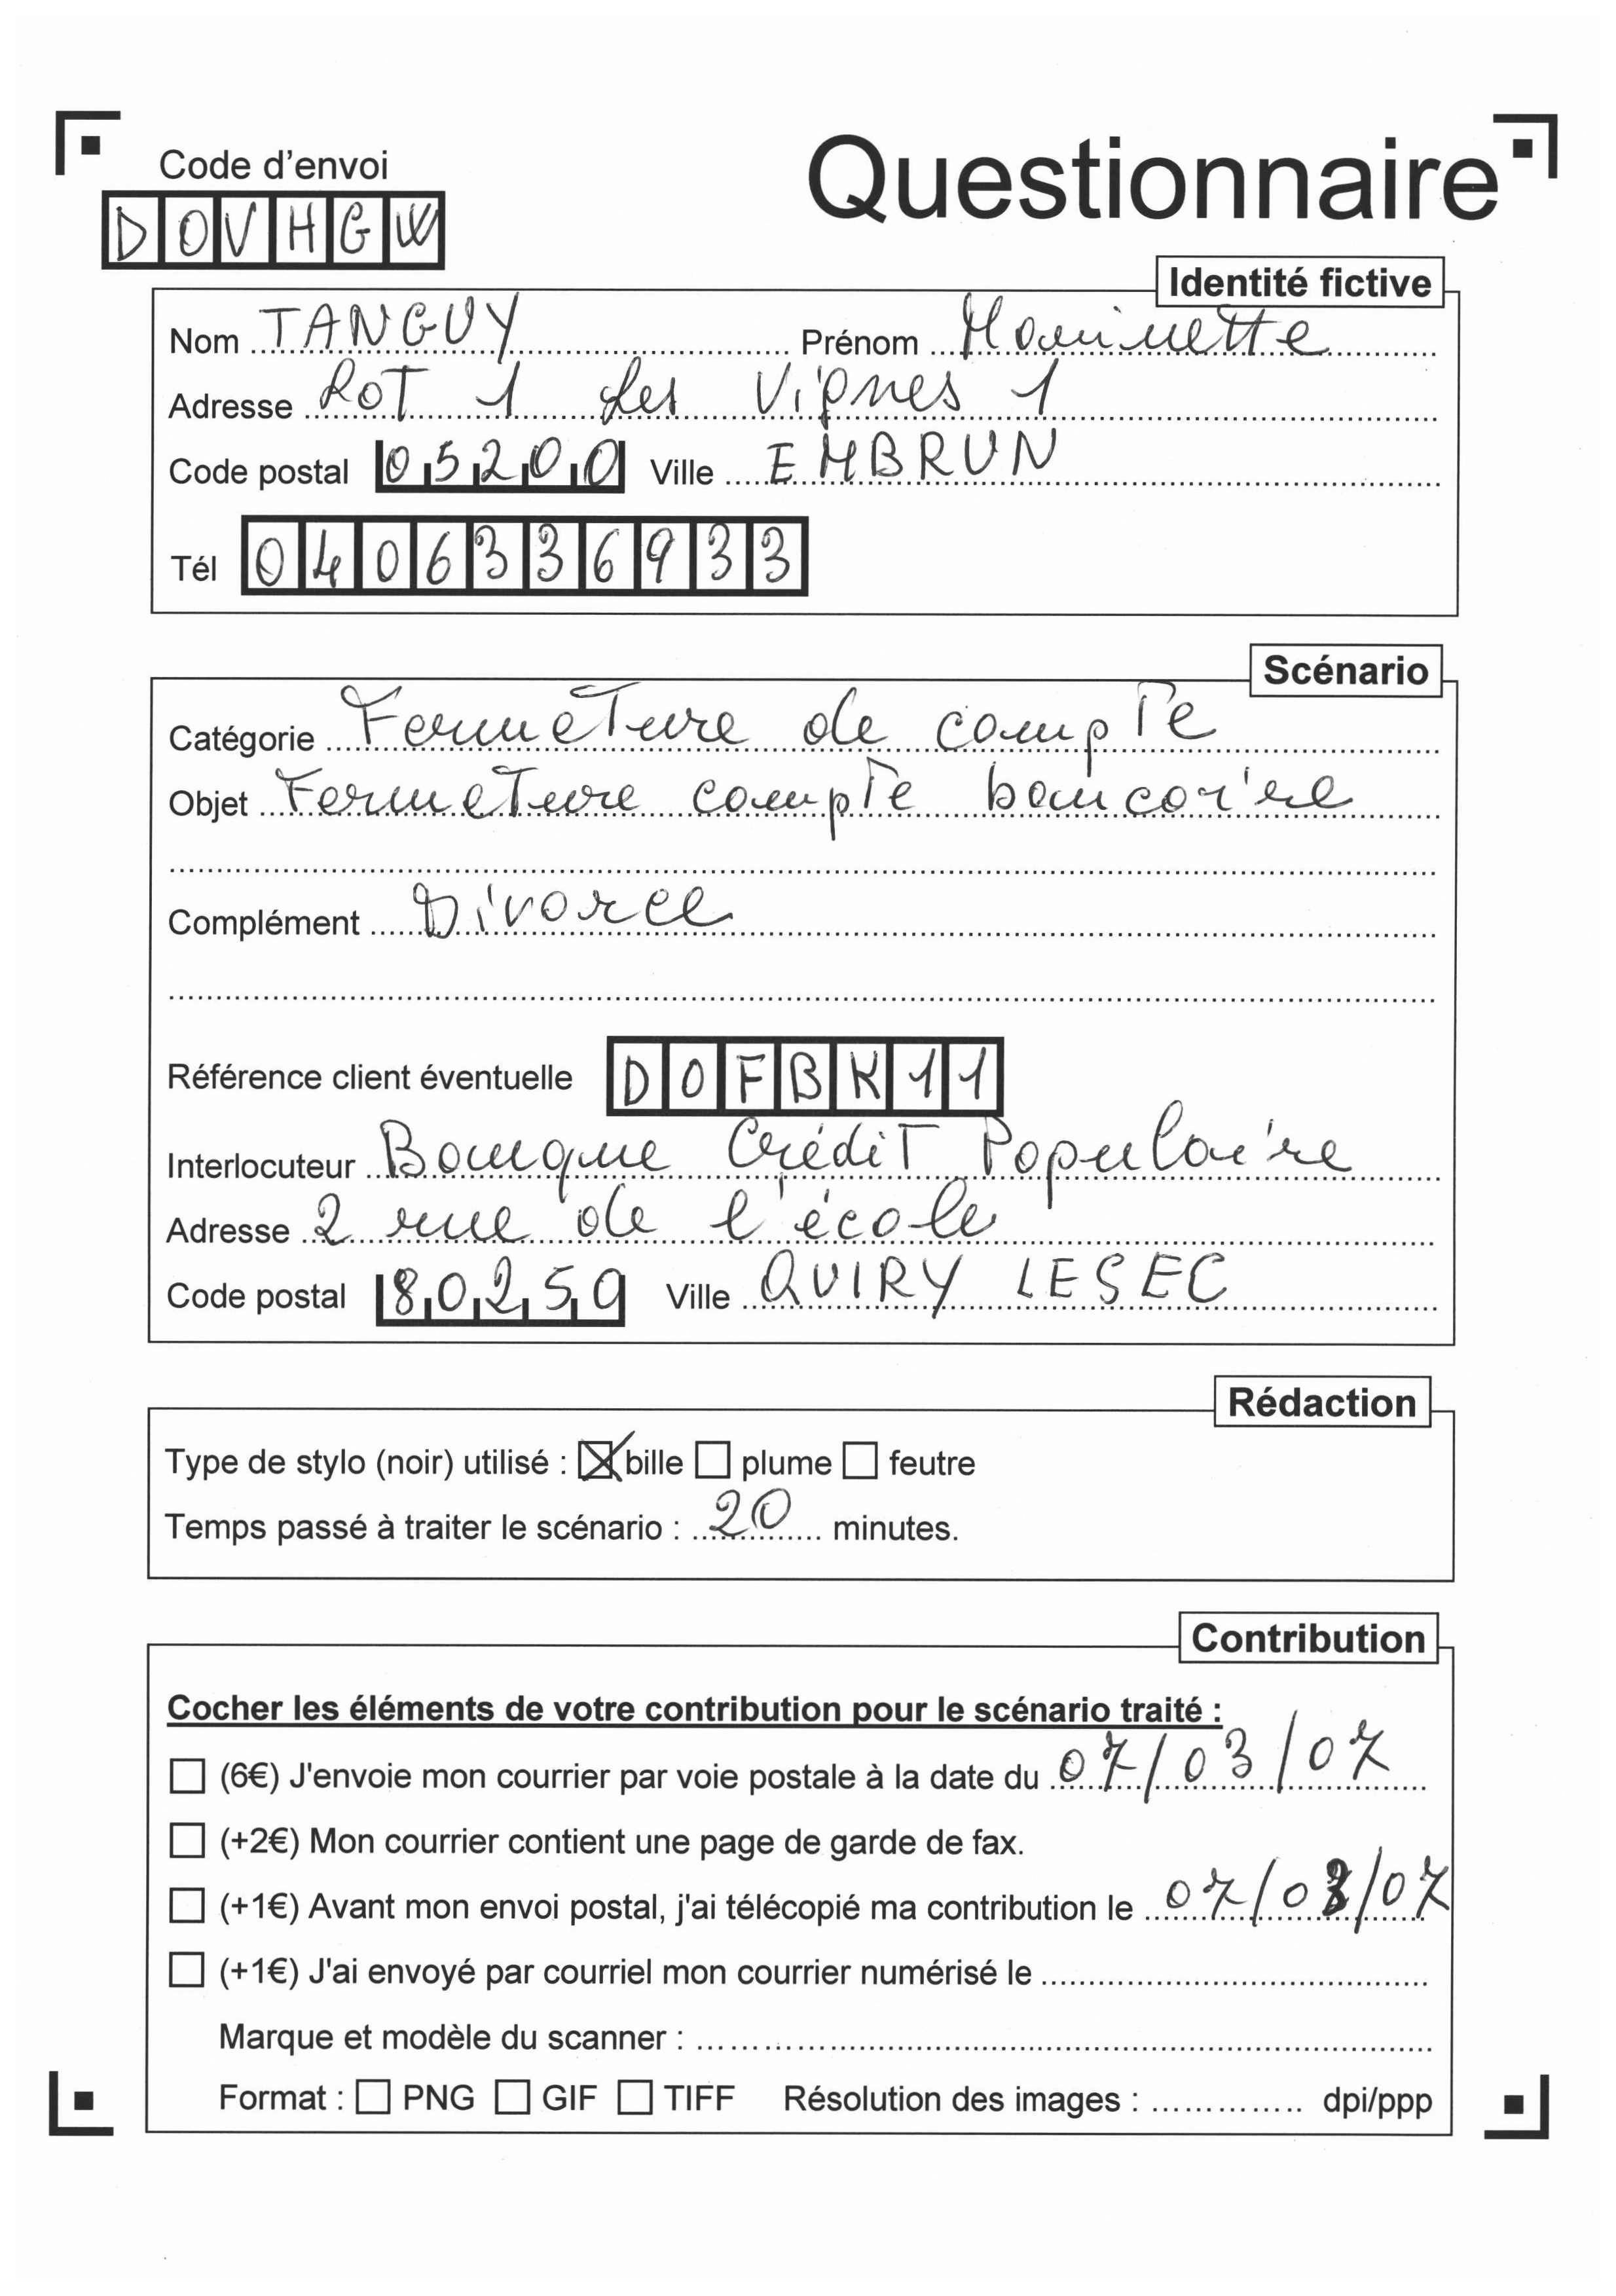 Code d'envoi
Questionnaire
DOVHGW
Identité fictive
Nom TANGUY Prénom
Adresse LOT 1 Les Vignes 1
Code postal 05200 Ville EMBRUN
Tél 0406336933
Scénario
Catégorie Fermeture de compte
Objet Fermeture compte bancaire
Complément Divorce
Référence client éventuelle DOFBK11
Interlocuteur Banque Crédit Populaire
Adresse 2 rue de l'école
Code postal 80250 Ville QUIRY LESEC
Rédaction
Type de stylo (noir) utilisé : ☒ bille ☐ plume ☐ feutre
Temps passé à traiter le scénario : 20 minutes.
Contribution
Cocher les éléments de votre contribution pour le scénario traité :
☐ (6€) J'envoie mon courrier par voie postale à la date du 07/03/07
☐ (+2€) Mon courrier contient une page de garde de fax.
☐ (+1€) Avant mon envoi postal, j'ai télécopié ma contribution le 07/03/07
☐ (+1€) J'ai envoyé par courriel mon courrier numérisé le
Marque et modèle du scanner :
Format : ☐ PNG ☐ GIF ☐ TIFF Résolution des images : dpi/ppp